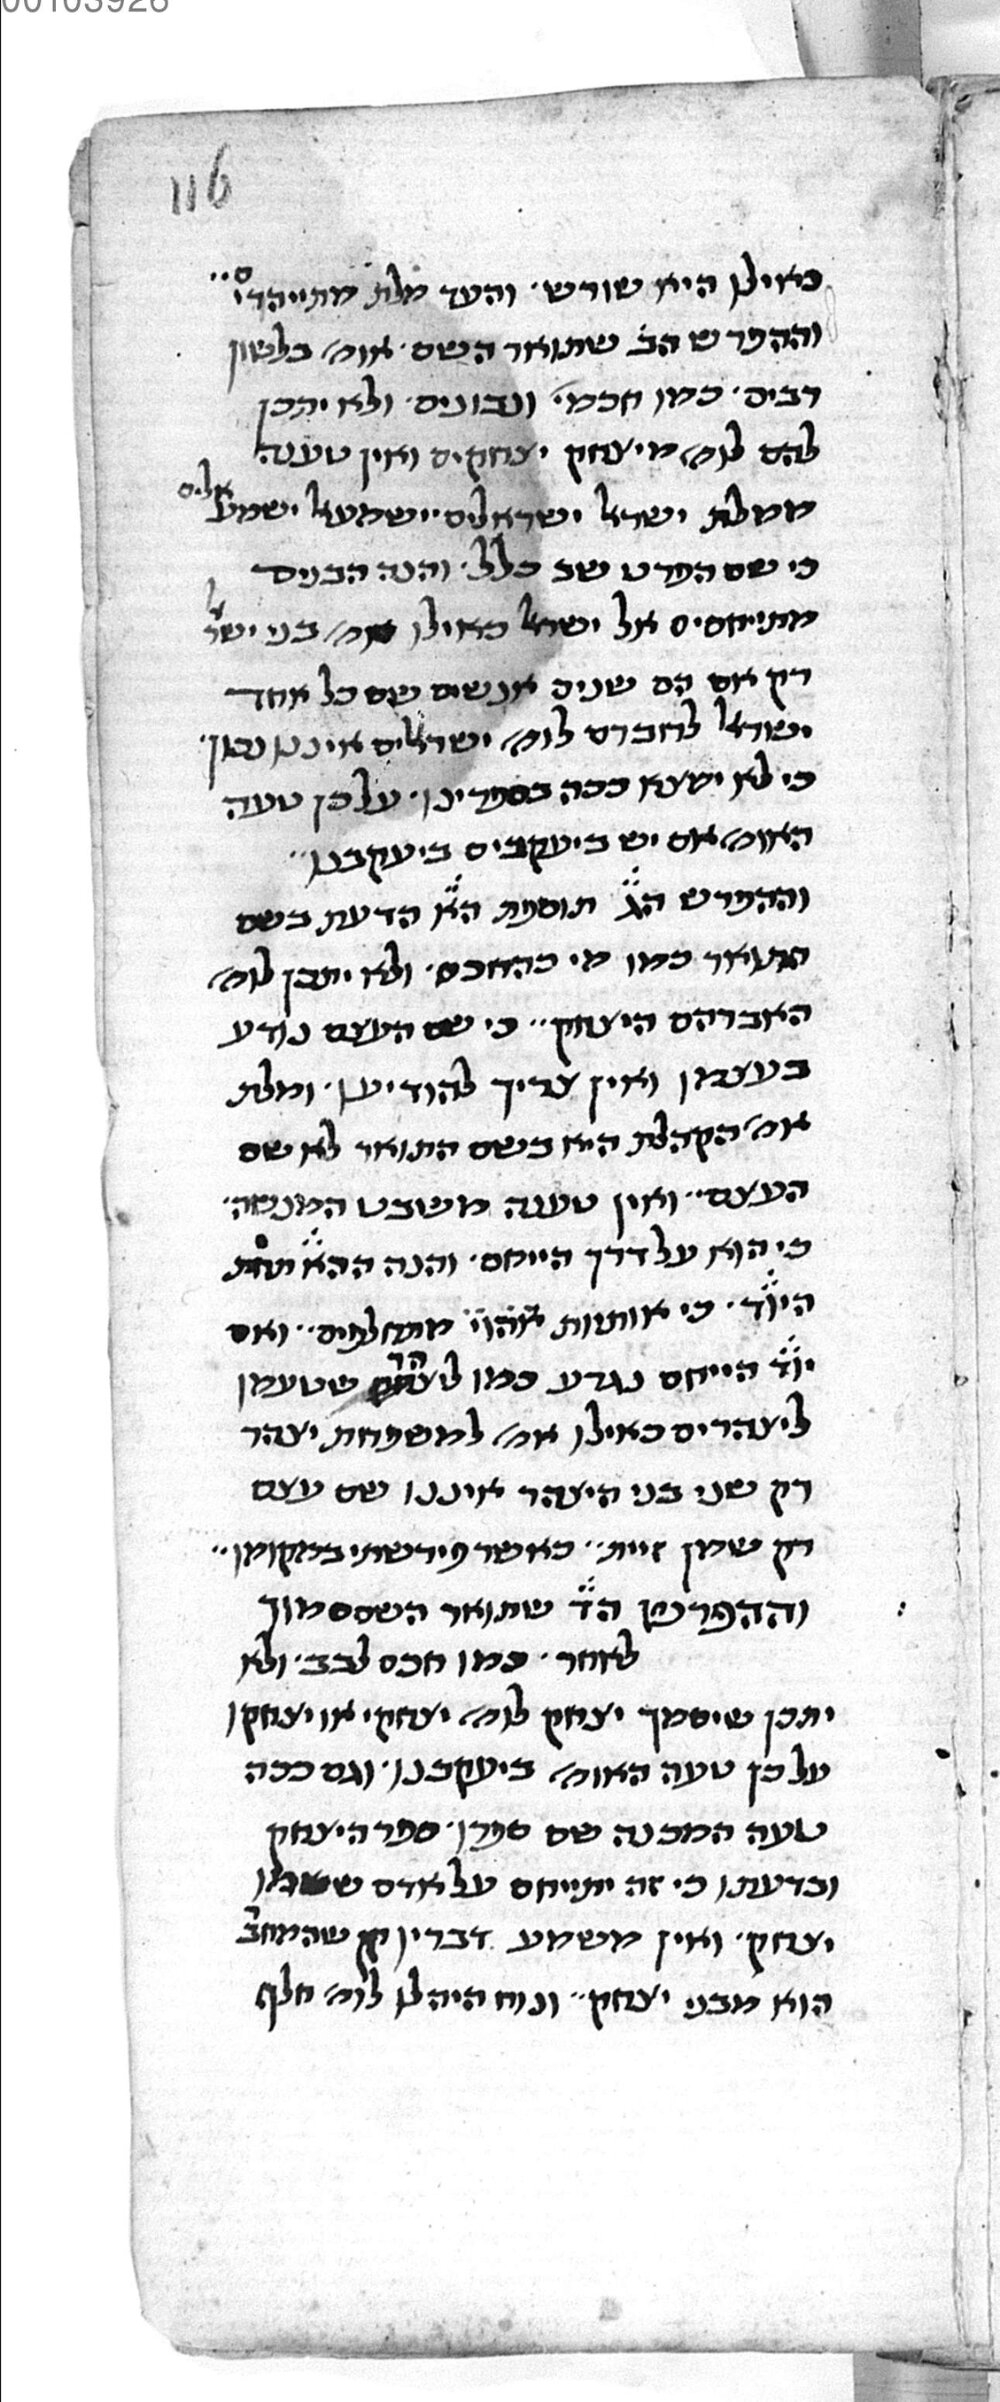 00103926
116
כאילו היא שורש. והעד מלת מתייהדים..
וההפרש הב שתואר השם. אומ' בלשון
רבים. כמו חכמי' ונבונים. ולא יתכן
להם לומ' מיצחק יצחקים ואין טענה
ממלת ישראל ישראלים יישמעאל ישמעאלים
כי שם הפרט שב כלל. והנה הבנים
מתייחסים אל ישראל כאילו אמ' בני ישראל
רק אם הם שנים אנשים שם כל אחד
ישראל לחברם לומ' ישראלים איננו נכון.
כי לא ימצא ככה בספרינו. על כן טעה
האומ' אם יש ביעקבים ביעקבנו..
וההפרש הג תוספת הא הדעת בשם
התואר כמו מי כהחכם. ולא יתכן לומ'
האברהם היצחק.. כי שם העצם נודע
בעצמו ואין צריך להודיעו. ומלת
אמ' הקהלת היא בשם התואר לא שם
העצם.. ואין טענה משבט המנשה.
כי הוא על דרך הייחס. והנה ההא
היוד. כי אותיות אהוי מתחלפים.. ואם
יוד הייחס נגרע כמו שטעמו
ליצהרים כאילו אמ' למשפחת יצהר
רק שני בני היצהר איננו שם עצם
רק שמן זיית.. כאשר פירשתי במקומו..
וההפרש הד שתואר השם סמוך
לאחר. כמו חכם לבב. ולא
יתכן שיסמך יצחק לומ' יצחקי או יצחקו
על כן טעה האומ' ביעקבנו. וגם ככה
טעה המכנה שם ספרו. ספר היצחק
ובדעתו כי זה יתייחס על אדם ששמו
יצחק. ואין משמע דבריו רק שהמחבר
הוא מבני יצחק.. ונוח היה לו לומ' חלף